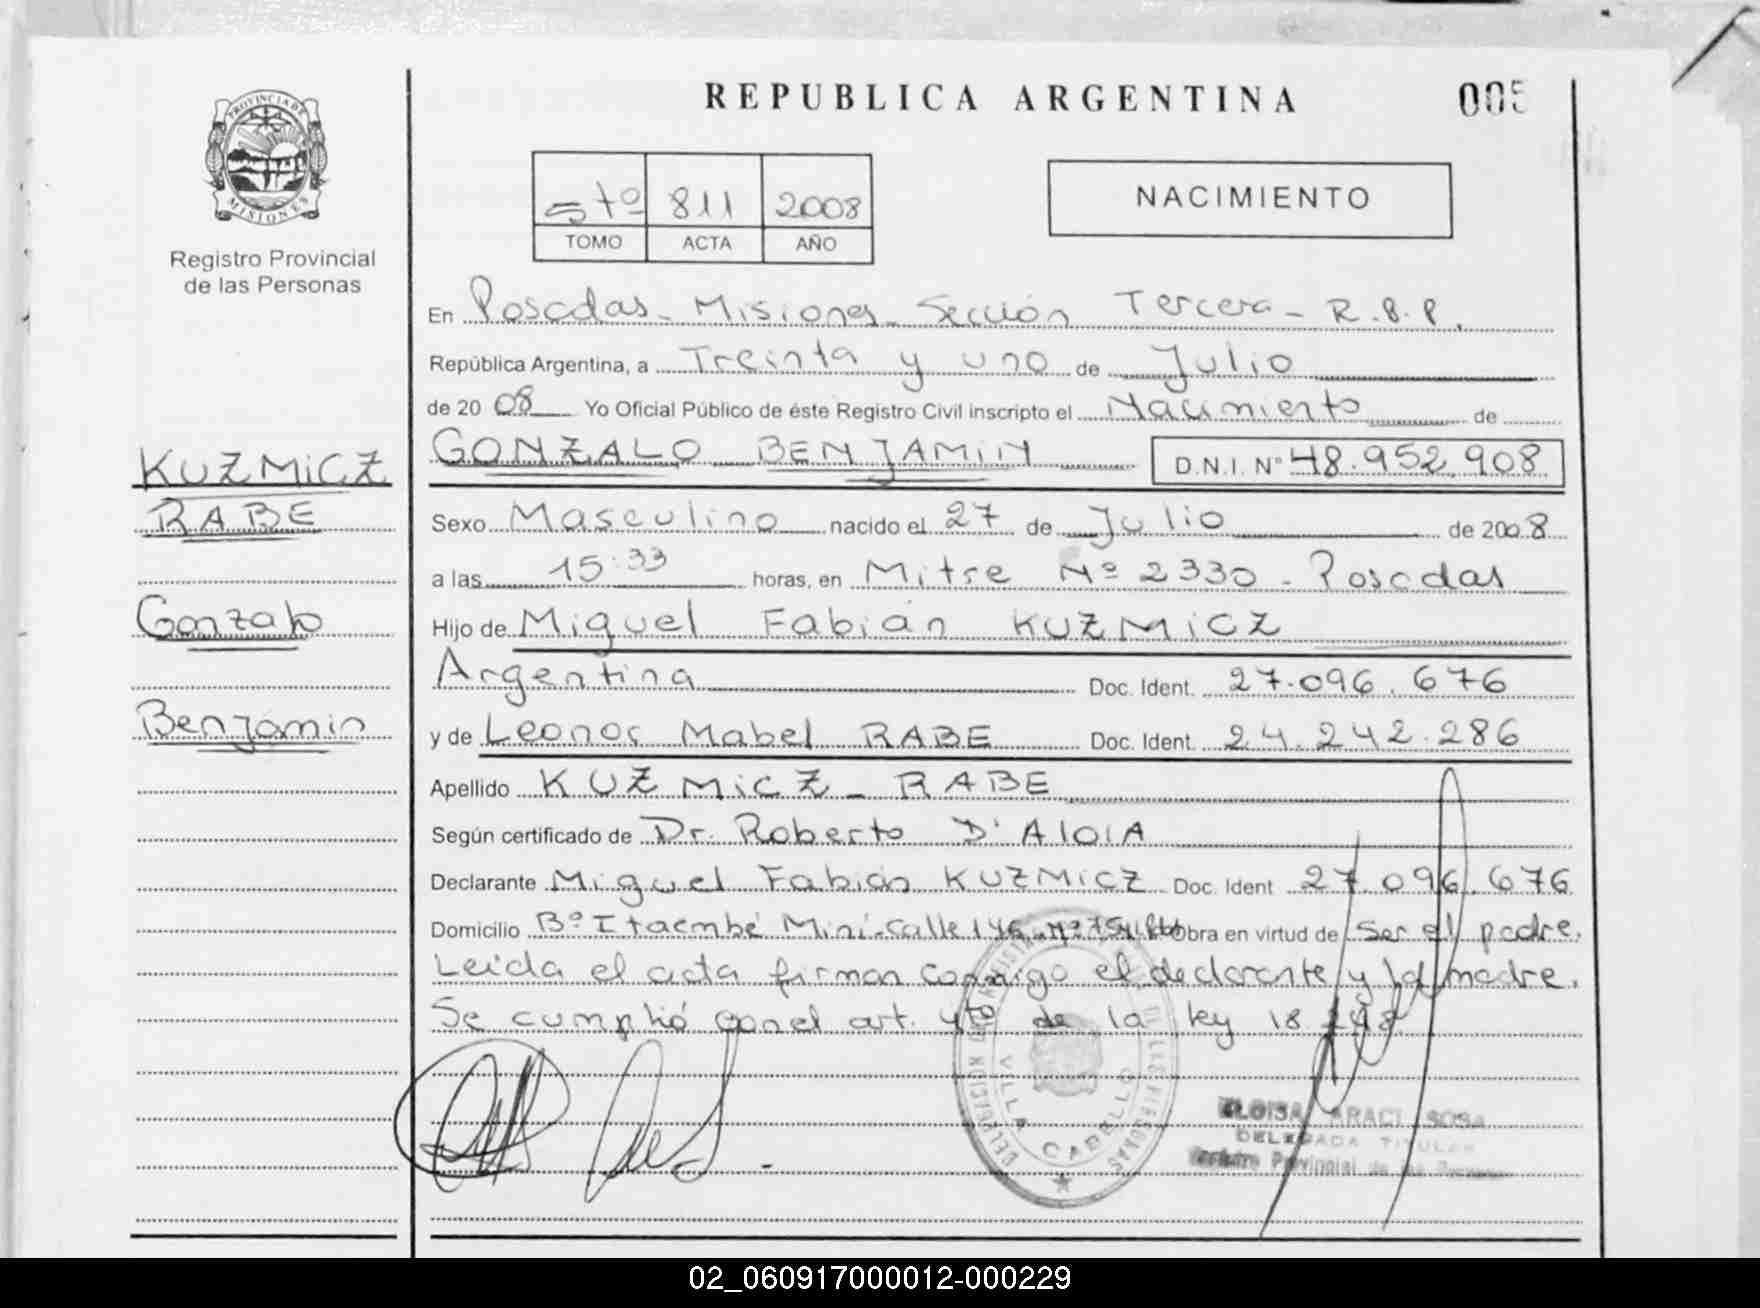 REPUBLICA ARGENTINA
005
PROVINCIA DE
MISIONES
Registro Provincial
de las Personas
5to 811 2008
TOMO ACTA AÑO
NACIMIENTO
En Posadas - Misiones - Sección Tercera - R.P.P.
República Argentina, a Treinta y uno de Julio
de 2008 Yo Oficial Público de éste Registro Civil inscripto el Nacimiento de
GONZALO BENJAMIN D.N.I. Nº 48.952.908
KUZMICZ
RABE
Gonzalo
Benjamin
Sexo Masculino nacido el 27 de Julio de 2008
a las 15:33 horas, en Mitre Nº 2330 - Posadas
Hijo de Miguel Fabián KUZMICZ
Argentina Doc. Ident. 27.096.676
y de Leonor Mabel RABE Doc. Ident. 24.242.286
Apellido KUZMICZ - RABE
Según certificado de Dr. Roberto D'AlOIA
Declarante Miguel Fabián KUZMICZ Doc. Ident 27.096.676
Domicilio Bº Itaembé Mini - Calle 146 - Nº Obra en virtud de Ser el padre.
Leida el acta firman conmigo el declarante y la madre.
Se cumplió con el art. 4to de la ley 18.248
VILLA CABELLO
ELOISA ARACI SOSA
DELEGADA TITULAR
Registro Provincial de las Personas
02_060917000012-000229